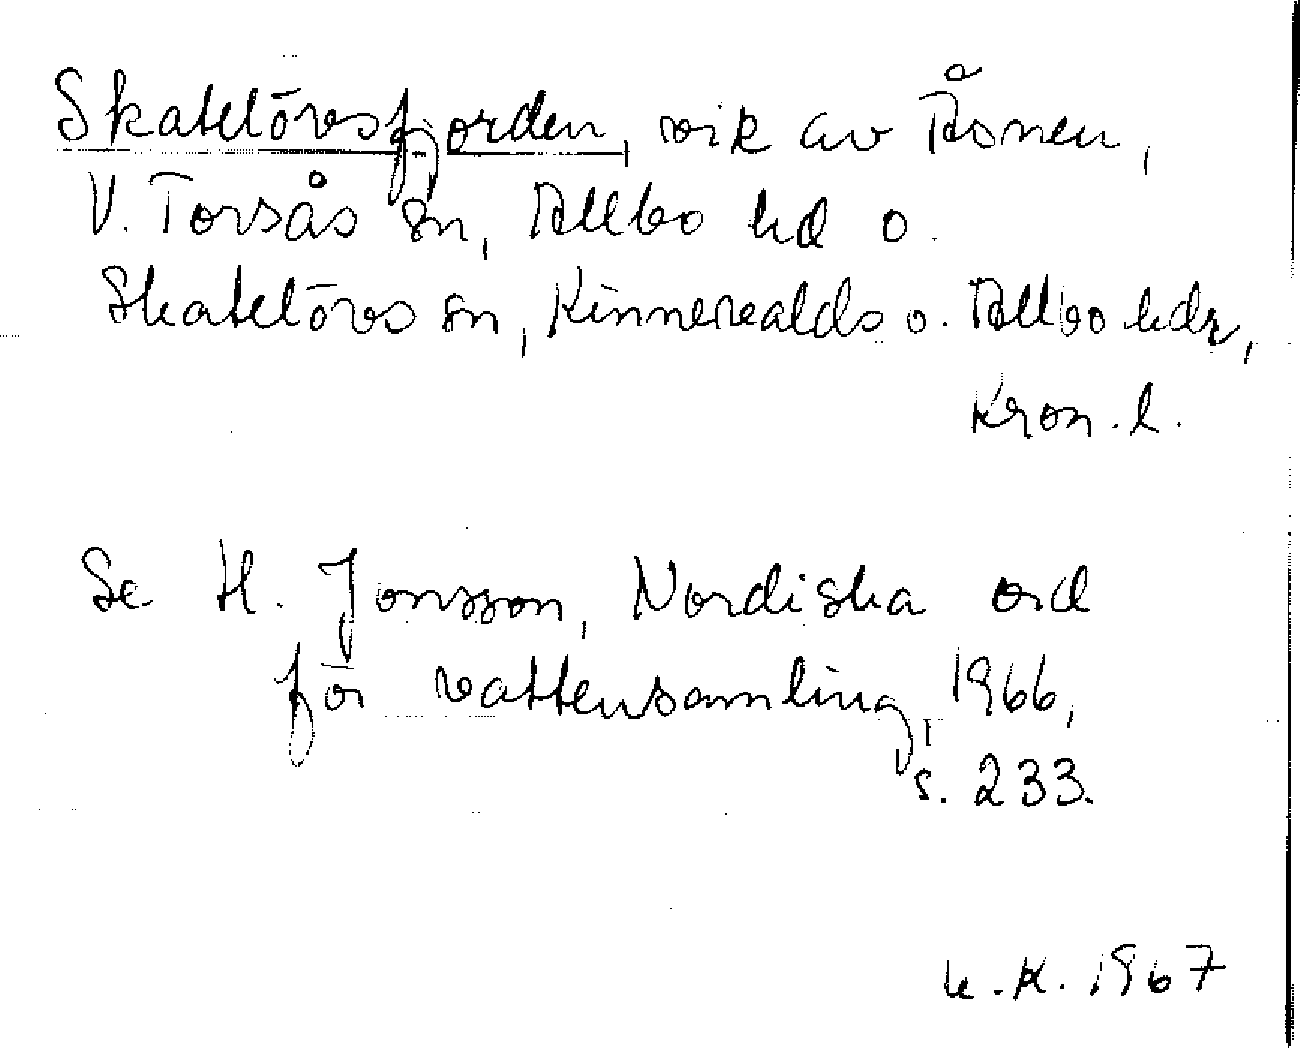 Skatelövsfjorden, vik av Åsnen,
V. Torsås sn, Allbo hd o.
Skatelövs sn, Kinnevalds o. Allbo hdr,
Kron. l.
Se H. Jonsson, Nordiska ord
för vattensamling, 1966,
s. 233.
K. 1967